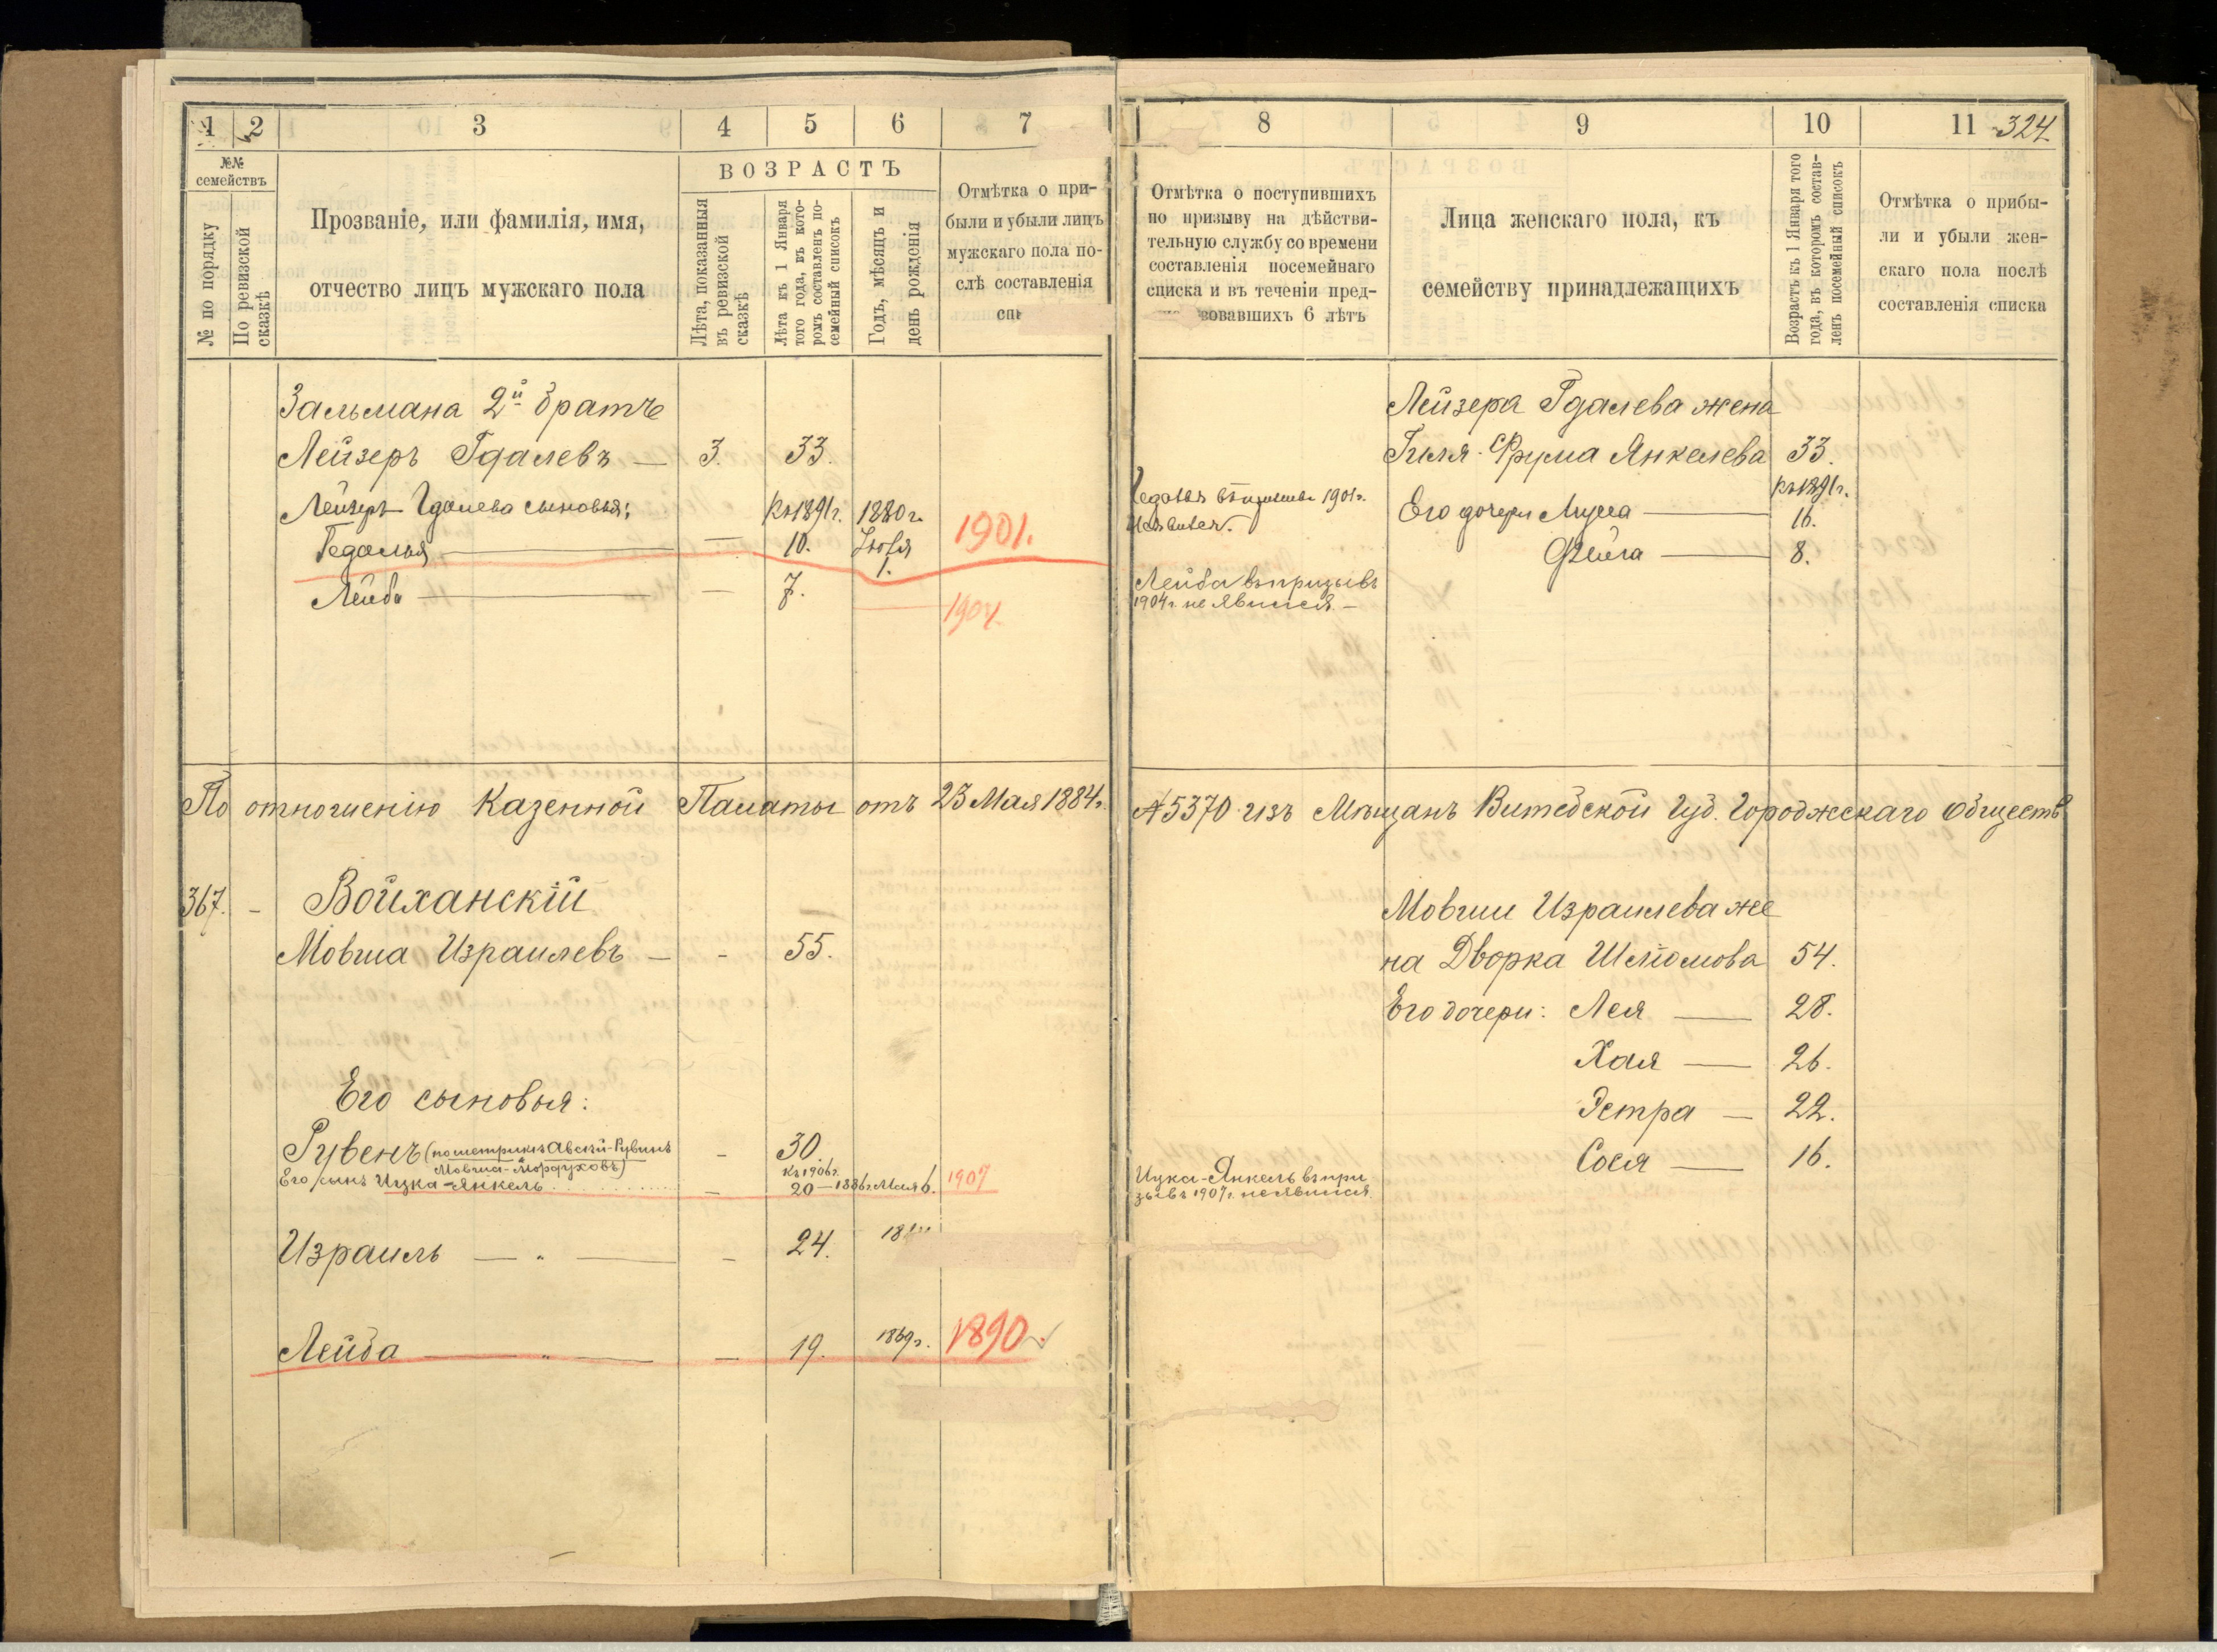 1 2 3 4 5 6 7
№№ семействъ
№ по порядку
По ревизской сказкѣ
Прозваніе, или фамилія, имя,
отчество лицъ мужскаго пола
ВОЗРАСТЪ
Лѣта, показанныя
въ ревизской
сказкѣ
Лѣта къ 1 Января
того года, въ кото-
ромъ составленъ по-
семейный списокъ
Годъ, мѣсяцъ и
день рожденія
Отмѣтка о при-
были и убыли лицъ
мужскаго пола по-
слѣ составленія
Зальмана 2й братъ
Лейзеръ Гдалевъ — 3. 33.
Лейзеръ Гдалева сыновья: Къ 1891г. 1880г.
Гедалья — 10. Іюля 1. 1901.
Лейба — 7. 1904.
По отношенію Казенной Палаты отъ 23 Мая 1884г.
367. - Войханскій
Мовша Израилевъ — - 55.
Его сыновья:
Рувенъ (по метрикѣ Авсѣй-Рувинъ - 30.
Мовша-Мордуховъ) Къ 1906г.
Его сынъ Ицка-Янкель - 20 — 1886г. Мая 6. 1907
Израиль — " — - 24.
Лейба — " — - 19. 1869г. 1890.
8 9 10 11 324
Отмѣтка о поступившихъ
по призыву на дѣйстви-
тельную службу со времени
составленія посемейнаго
списка и въ теченіи пред-
вовавшихъ 6 лѣтъ
Лица женскаго пола, къ
семейству принадлежащихъ
Возрастъ къ 1 Января того
года, въ которомъ состав-
ленъ посемейный списокъ
Отмѣтка о прибы-
ли и убыли жен-
скаго пола послѣ
составленія списка
Лейзера Гдалева жена
Гиля-Фрума Янкелева 33.
Къ 1891г.
1901г.
Его дочери 16.
Фейга — 8.
Лейба въ призывъ
1904г. не явился. —
№ 5370 изъ Мѣщанъ Витебской Губ. Городокскаго Обществ
Мовши Израилева же
на Дворка Шлёомова 54.
Его дочери: Лея — 28.
Хая — 26.
Эстра — 22.
Сося — 16.
Ицка-Янкель въ при
зывъ 1907г. не явился.